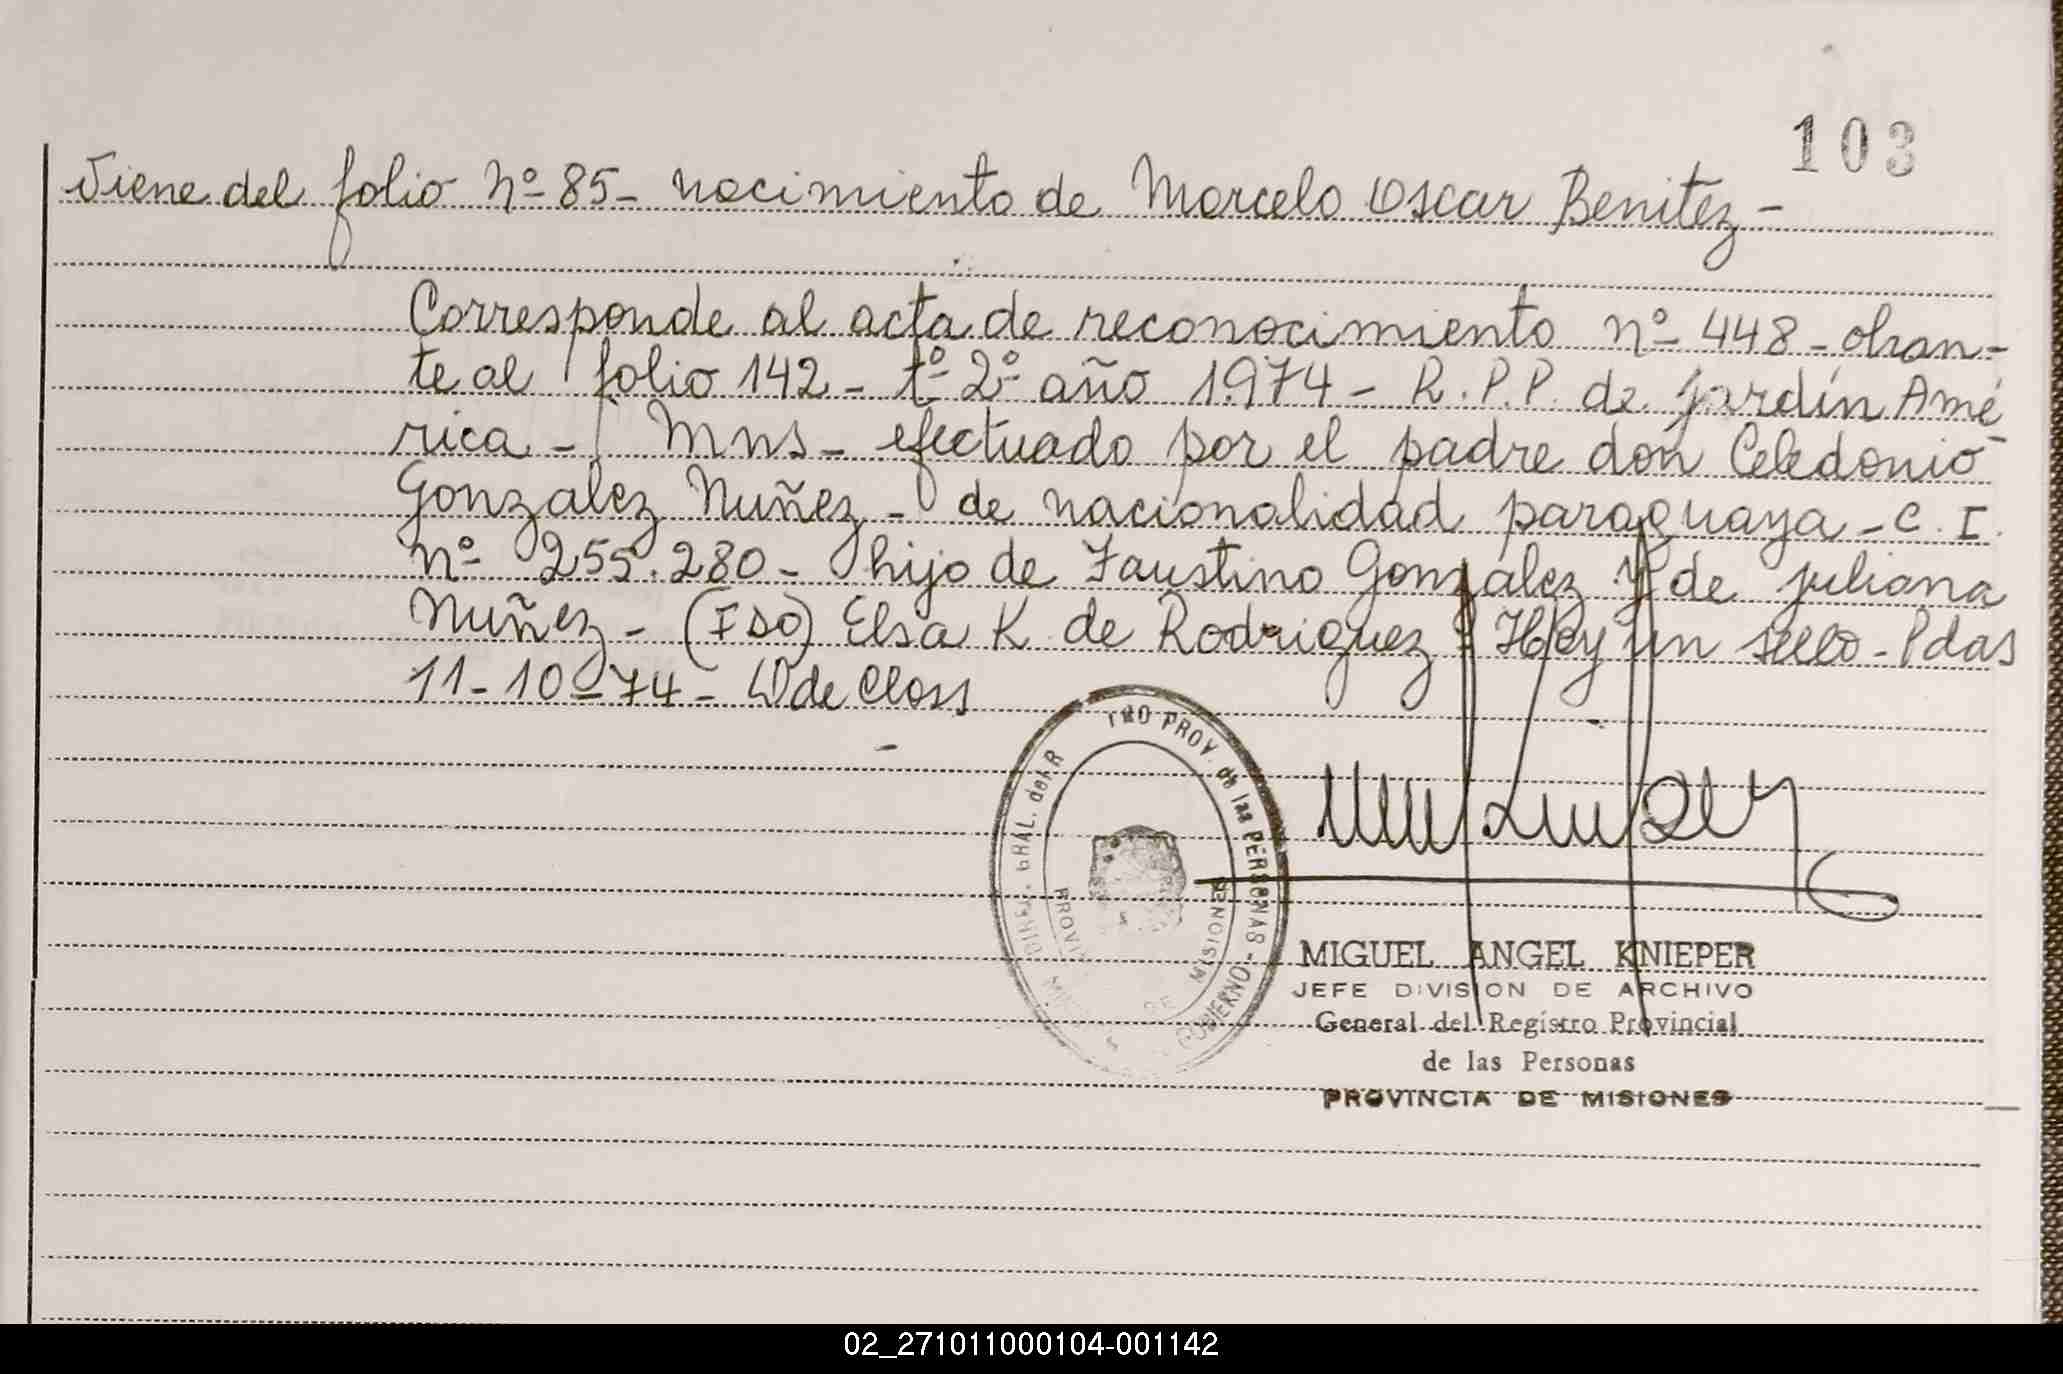 103
Viene del folio Nº 85 - nacimiento de Marcelo Oscar Benitez -
Corresponde al acta de reconocimiento nº 448 - obran-
te al folio 142 - tº 2º año 1.974 - R.P.P. de Jardín Amé
rica - Mns - efectuado por el padre don Celedonio
Gonzalez Nuñez - de nacionalidad paraguaya - C.I.
nº 255.280 - hijo de Faustino Gonzalez y de Juliana
Nuñez - (Fdo) Elsa K de Rodriguez - Hay un sello - Pdas
11-10-74 - W de Closs
GRAL. del R TRO PROV. de las PERSONAS - GOBIERNO
PROVI DE MISIONES
MIGUEL ANGEL KNIEPER
JEFE DIVISION DE ARCHIVO
General del Registro Provincial
de las Personas
PROVINCIA DE MISIONES
02_271011000104-001142